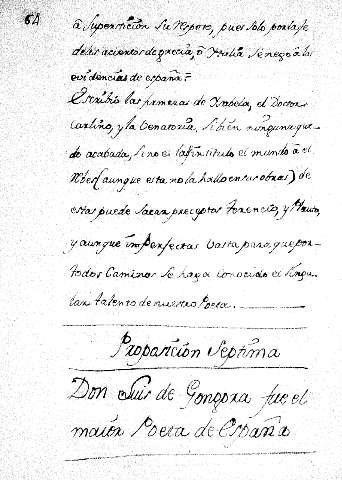 64
â supersticiôn su respeto, pues solo por la fe
de los aciertos de grecia, ô Italia se nego â las
evidencias de españa.=
Escribiô las primeras de Isabela, el Doctor
Carlino, y la Venatoria, si bien ninguna que-
do acabada, sino es la intitulo el mundo â el
(aunque esta no la hallo en sus obras) de
estas puede sacar preceptos Terencio, y Plauto,
y aunque imperfectas basta para que por
todos Caminos se haga Conocido el singu-
lar talento de nuestro Poeta.
Proposiciôn Septima
Don Luis de Gongora fue el
maior Poeta de España